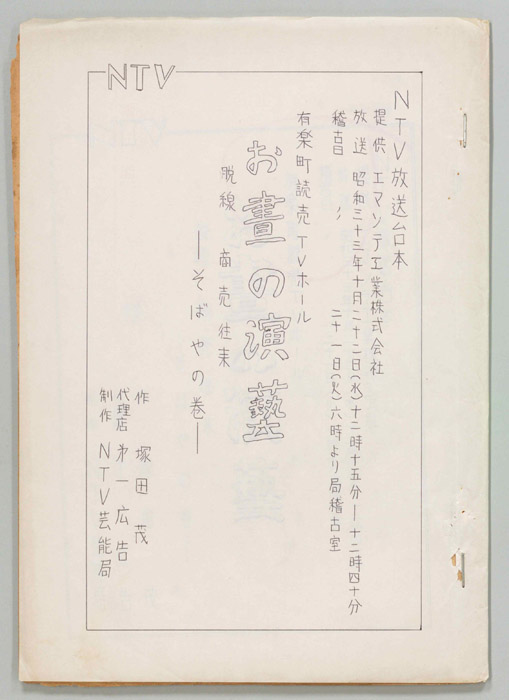 NTV
NTV放送台本
提供 エマソテ工業株式会社
放送 昭和三十三年十月二十二日(水)十二時十五分―十二時四十分
稽古日 〃 二十一日(火)六時より局稽古室
有楽町読売TVホール
お晝の演藝
脱線 商売往来
―そばやの巻―
作 塚田茂
代理店 第一広告
制作 NTV芸能局